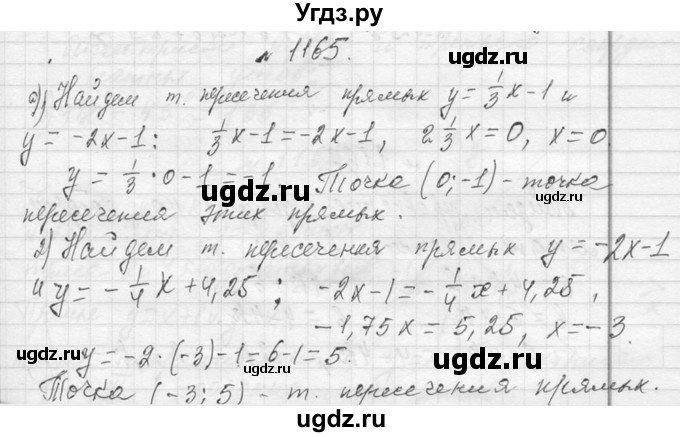 Угдз.ру
№ 1165.
1) Найдем т. пересечения прямых y = 1/3 x - 1 и
y = -2x - 1: 1/3 x - 1 = -2x - 1, 2 1/3 x = 0, x = 0.
y = 1/3 · 0 - 1 = -1. Точка (0; -1) - точка
пересечения этих прямых.
2) Найдем т. пересечения прямых y = -2x - 1
и y = - 1/4 x + 4,25; -2x - 1 = - 1/4 x + 4,25,
-1,75x = 5,25, x = -3.
y = -2 · (-3) - 1 = 6 - 1 = 5.
Точка (-3; 5) - т. пересечения прямых.
ugdz.ru
ugdz.ru
ugdz.ru
ugdz.ru
ugdz.ru
ugdz.ru
ugdz.ru
ugdz.ru